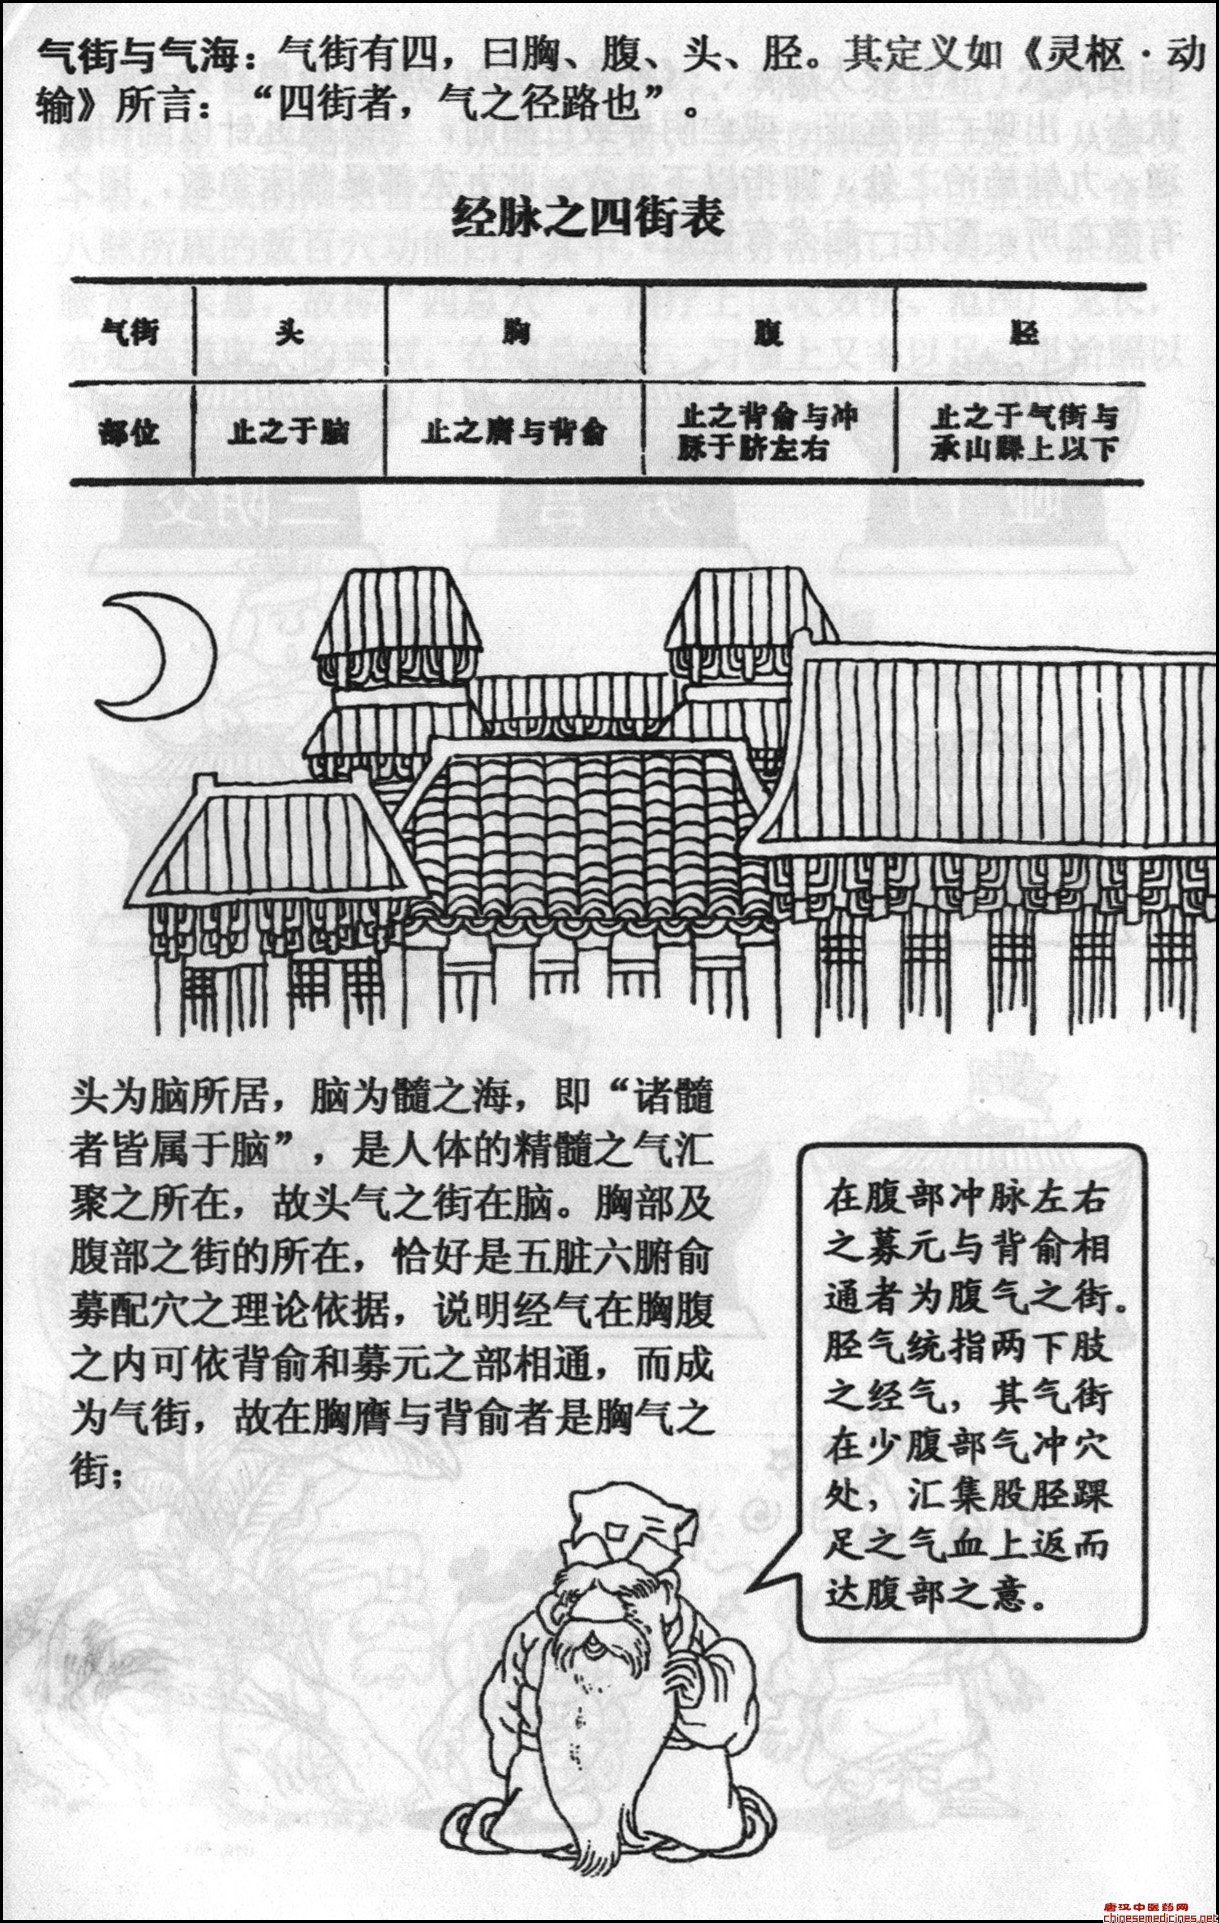 气街与气海：气街有四，曰胸、腹、头、胫。其定义如《灵枢·动
输》所言：“四街者，气之径路也”。
经脉之四街表
气街 头 胸 腹 胫
部位 止之于脑 止之膺与背俞 止之背俞与冲
脉于脐左右 止之于气街与
承山踝上以下
头为脑所居，脑为髓之海，即“诸髓
者皆属于脑”，是人体的精髓之气汇
聚之所在，故头气之街在脑。胸部及
腹部之街的所在，恰好是五脏六腑俞
募配穴之理论依据，说明经气在胸腹
之内可依背俞和募元之部相通，而成
为气街，故在胸膺与背俞者是胸气之
街；
在腹部冲脉左右
之募元与背俞相
通者为腹气之街。
胫气统指两下肢
之经气，其气街
在少腹部气冲穴
处，汇集股胫踝
足之气血上返而
达腹部之意。
唐汉中医药网
chinesemedicines.net